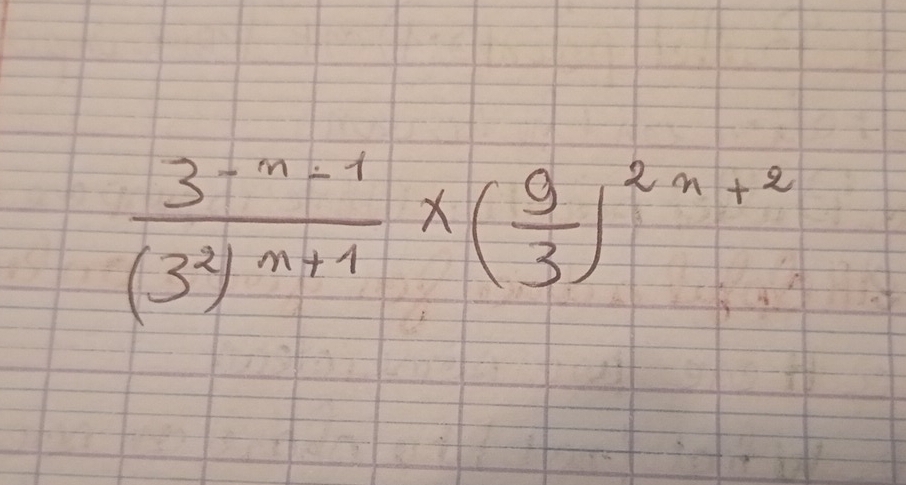 3^{-n-1} / (3²)^{n+1} × (9/3)^{2n+2}